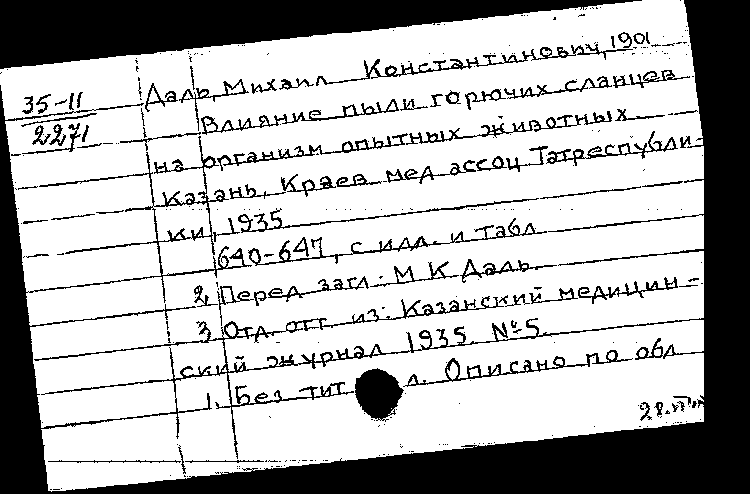 35-11
2271
Даль, Михаил Константинович, 1901
Влияние пыли горючих сланцев
на организм опытных животных.
Казань, Краев. мед ассоц Татреспубли-
ки, 1935
640-647, с илл. и табл
2. Перед загл.: М К Даль.
3. Отд. отт. из: Казанский медицин-
ский журнал 1935 №5.
1. Без тит л. Описано по обл